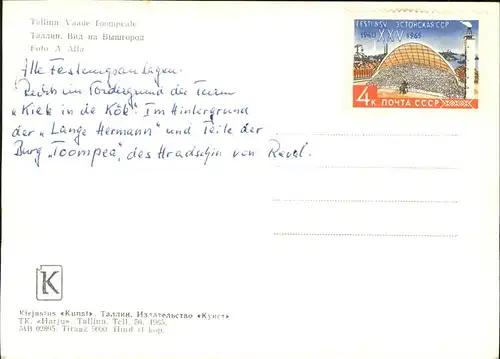 Tallinn. Vaade Toompeale
Таллин. Вид на Вышгород
Foto A. Alla
EESTI NSV ЭСТОНСКАЯ ССР
1940 XXV 1965
4 К ПОЧТА СССР
Alte Festungsanlagen.
Rechts im Vordergrund der Turm
"Kiek in de Kök". Im Hintergrund
der "Lange Hermann" und Teile der
Burg "Toompea", des Hradschin von Reval.
K
Kirjastus «Kunst». Таллин. Издательство «Кунст»
TK. «Harju», Tallinn. Tell. 56. 1965.
MB 02895. Tiraaž 5000 Hind 4 kop.